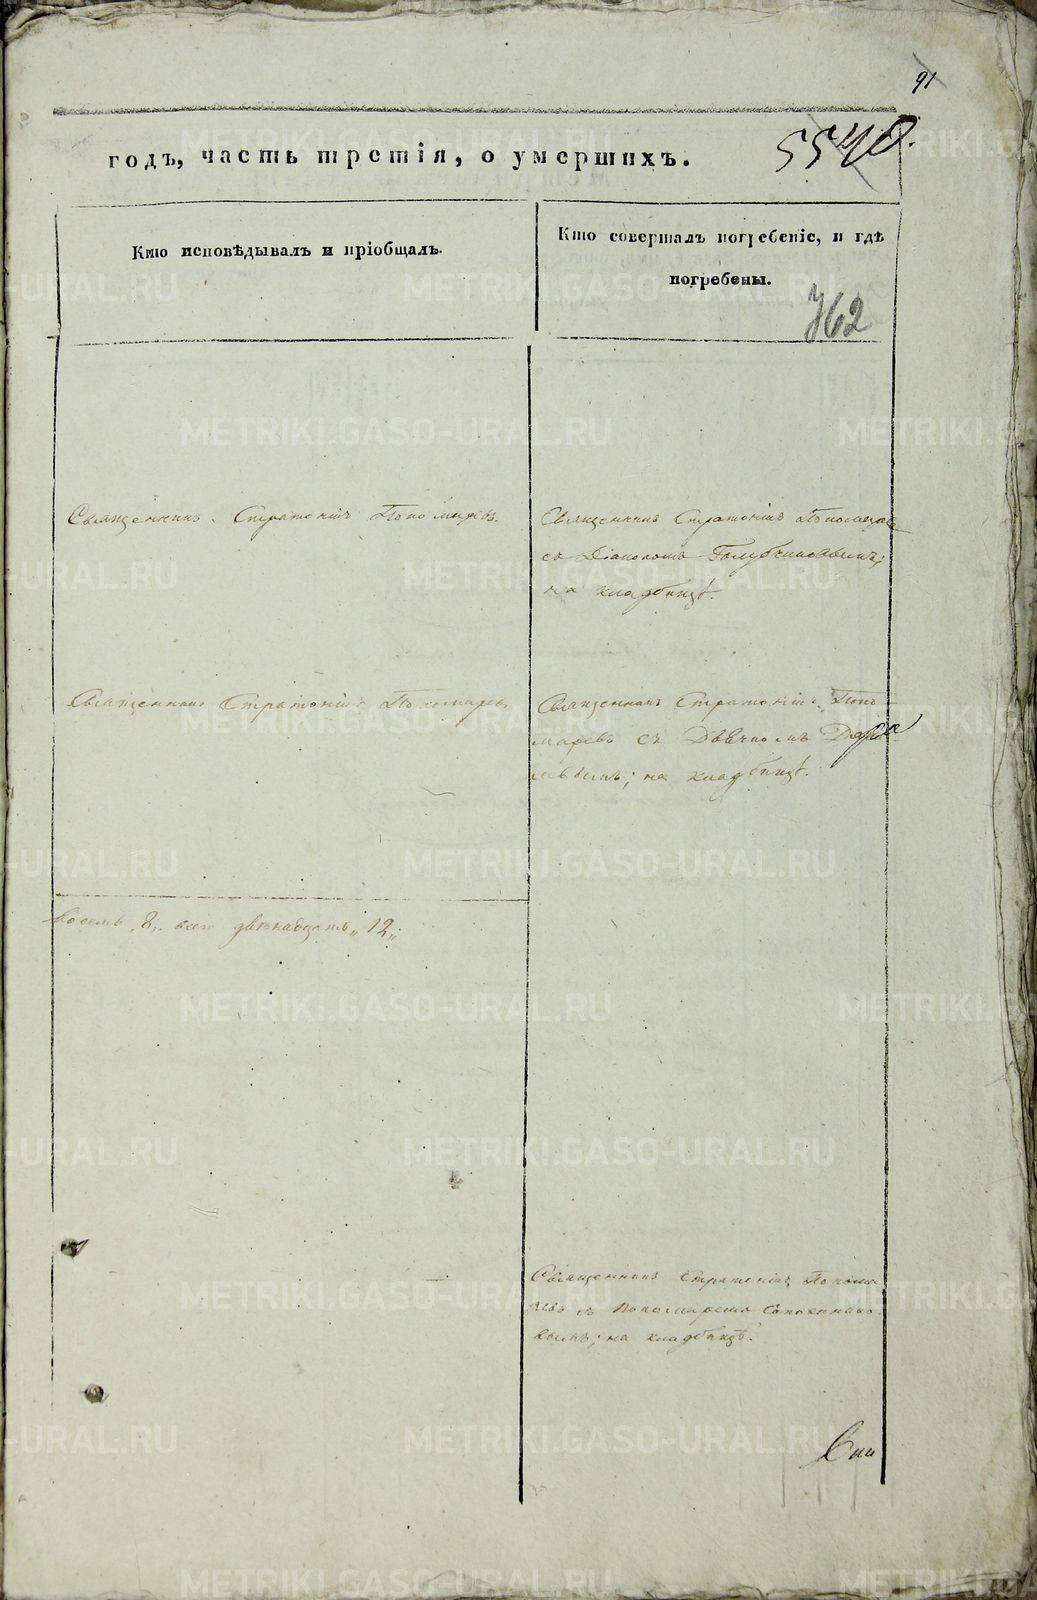 91
5540.
годъ, часть третія, о умершихъ.
Кто исповѣдывалъ и пріобщалъ.
Кто совершалъ погребеніе, и гдѣ
погребены.
762
Священникъ Стратоникъ Пономаревъ.
Священникъ Стратоникъ Пономарев
съ Діакономъ
на кладбищѣ.
Священникъ Стратоникъ Пономаревъ
Священникъ Стратоникъ Поно
маревъ съ Дьячкомъ
на кладбищѣ.
восемь „8„ всего двѣнадцать „12„
Священникъ Стратоникъ Понома
ревъ съ Пономаремъ
вымъ; на кладбищѣ.
METRIKI.GASO-URAL.RU